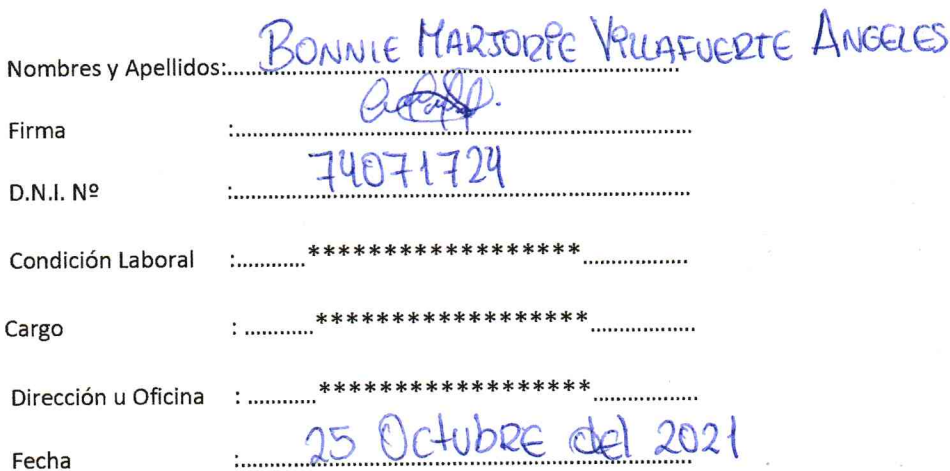 Nombres y Apellidos:....BONNIE MARJORIE VILLAFUERTE ANGELES
Firma :....
D.N.I. Nº :....74071724
Condición Laboral :............******************.................
Cargo : ...........******************.................
Dirección u Oficina : ...........******************.................
Fecha :....25 Octubre del 2021